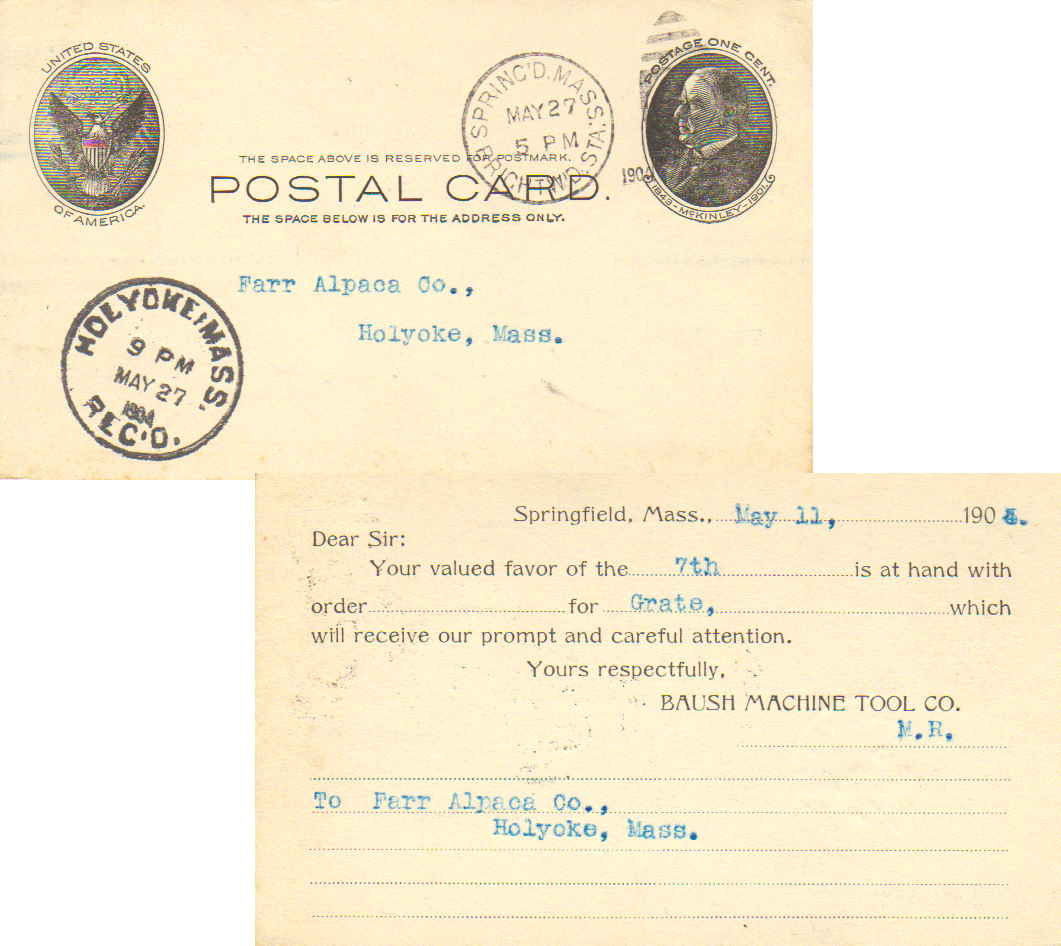 UNITED STATES
OF AMERICA.
SPRING'D. MASS.
MAY 27
5 PM
BRIGHTW'D. STA.
POSTAGE ONE CENT.
1843-McKINLEY-1901.
THE SPACE ABOVE IS RESERVED FOR POSTMARK.
POSTAL CARD.
THE SPACE BELOW IS FOR THE ADDRESS ONLY.
Farr Alpaca Co.,
Holyoke, Mass.
HOLYOKE, MASS.
9 PM
MAY 27
1904
REC'D.
Springfield, Mass., May 11, 1904.
Dear Sir:
Your valued favor of the 7th is at hand with
order for Grate, which
will receive our prompt and careful attention.
Yours respectfully,
BAUSH MACHINE TOOL CO.
M.R.
To Farr Alpaca Co.,
Holyoke, Mass.